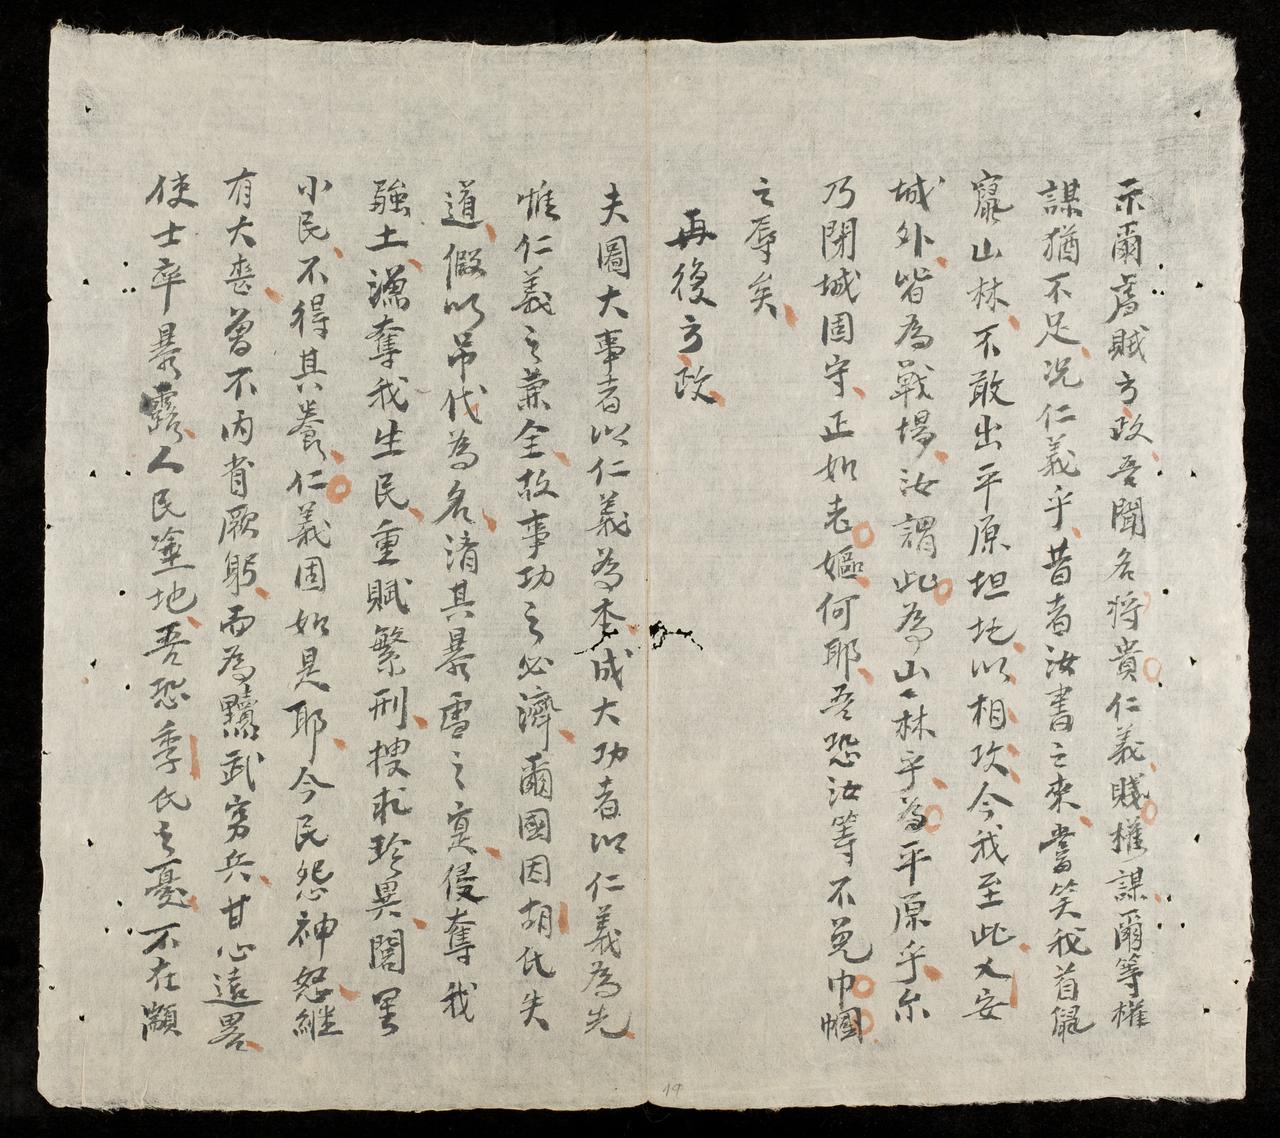 示爾虜賊方政吾聞名將貴仁義賤權謀爾等權
謀猶不足况仁義乎昔者汝書之來嘗笑我首鼠
竄山林不敢出平原坦地以相攻今我至此乂安
城外皆為戰場汝謂此為山林乎為平原乎尔
乃閉城固守正如老嫗何耶吾恐汝等不免巾幗
之辱矣
再復方政
夫圖大事者以仁義為本成大功者以仁義為先
惟仁義之兼全故事功之必濟爾國因胡氏失
道假以吊伐為名濟其暴虐之實侵奪我
疆土漁奪我生民重賦繁刑搜求珍異閭里
小民不得其養仁義固如是耶今民怨神怒繼
有大喪曾不內省厥躬而為黷武窮兵甘心遠畧
使士卒暴露人民塗地吾恐季氏之憂不在顓
19